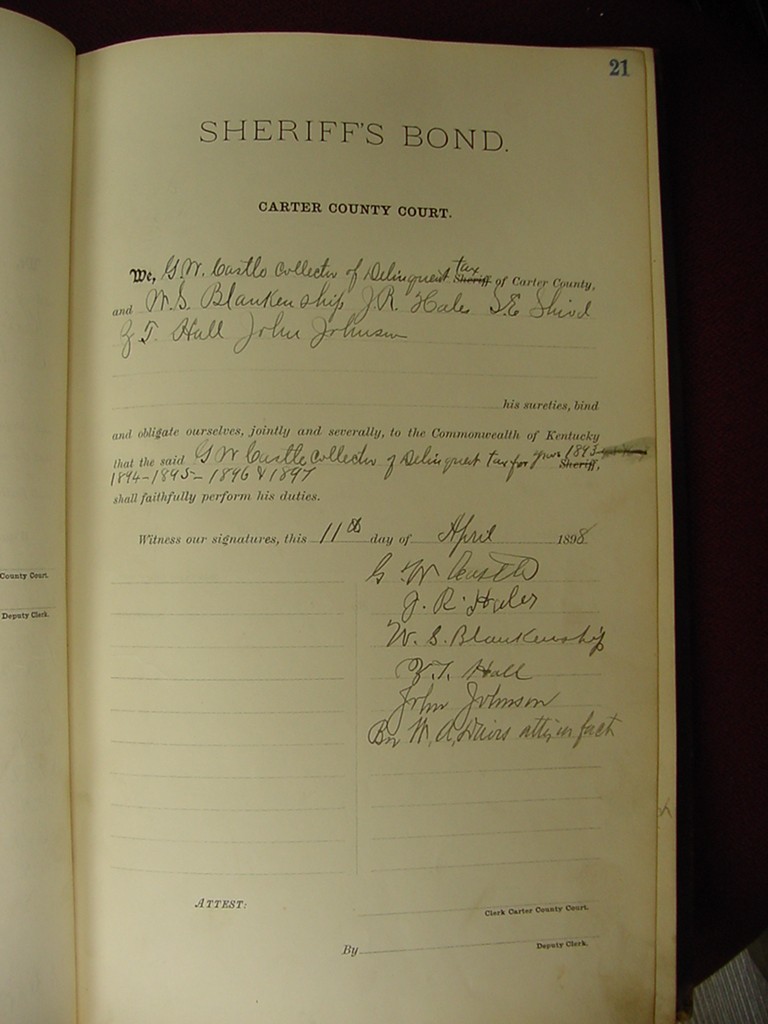 21
SHERIFF'S BOND.
CARTER COUNTY COURT.
We, G. W. Castle Collector of Delinquent tax Sheriff of Carter County,
and W. S. Blankenship J. R. Hales S. E.
Z T. Hall John Johnson
his sureties, bind
and obligate ourselves, jointly and severally, to the Commonwealth of Kentucky
that the said G W Castle collector of Delinquent tax for years 1893
Sheriff,
1894-1895- 1896 & 1897
shall faithfully perform his duties.
Witness our signatures, this 11th day of April 1898
G W Castle
J. R. Hales
W. S. Blankenship
County Court.
Z. T. Hall
Deputy Clerk.
John Johnson
By W. A. Davis atty in fact
ATTEST:
Clerk Carter County Court.
By
Deputy Clerk.